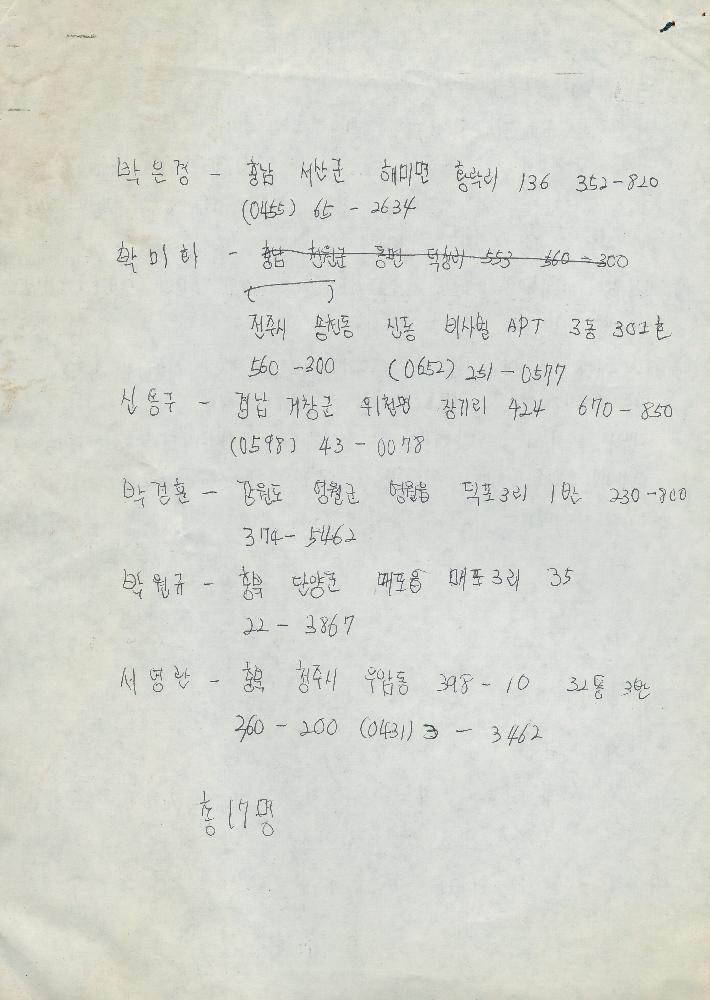 박은경 - 충남 서산군 해미면 황락리 136 352-820
(0455) 65 - 2634
박미화 - 충남 천원군 동면 덕성리 553 360-300
전주시 송천동 신동 비사벌 APT 3동 301호
560-300 (0652) 251-0577
신용구 - 경남 거창군 위천면 장기리 424 670-850
(0598) 43 - 0078
박경훈 - 강원도 영월군 영월읍 덕포3리 1반 230-800
374- 5462
박원규 - 충북 단양군 매포읍 매포3리 35
22 - 3867
서영란 - 충북 청주시 우암동 398 - 10 32통 3반
360 - 200 (0431) 3 - 3462
총 17명